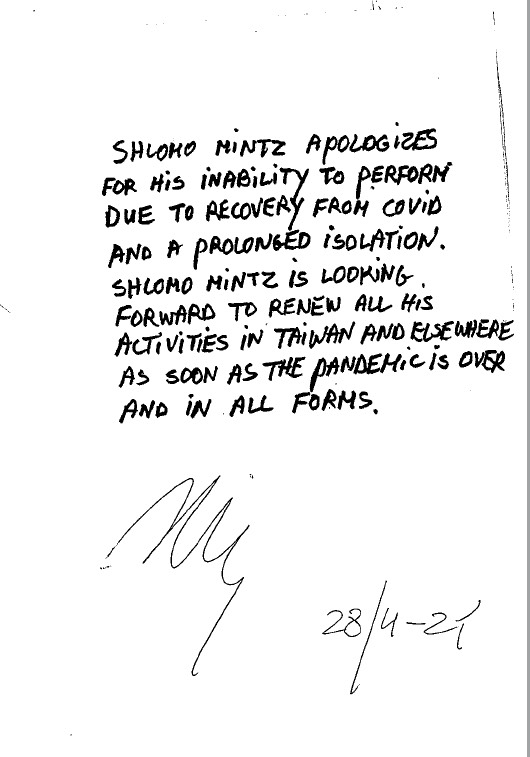 SHLOMO MINTZ APOLOGIZES
FOR HIS INABILITY TO PERFORM
DUE TO RECOVERY FROM COVID
AND A PROLONGED ISOLATION.
SHLOMO MINTZ IS LOOKING
FORWARD TO RENEW ALL HIS
ACTIVITIES IN TAIWAN AND ELSEWHERE
AS SOON AS THE PANDEMIC IS OVER
AND IN ALL FORMS.
28/4-21